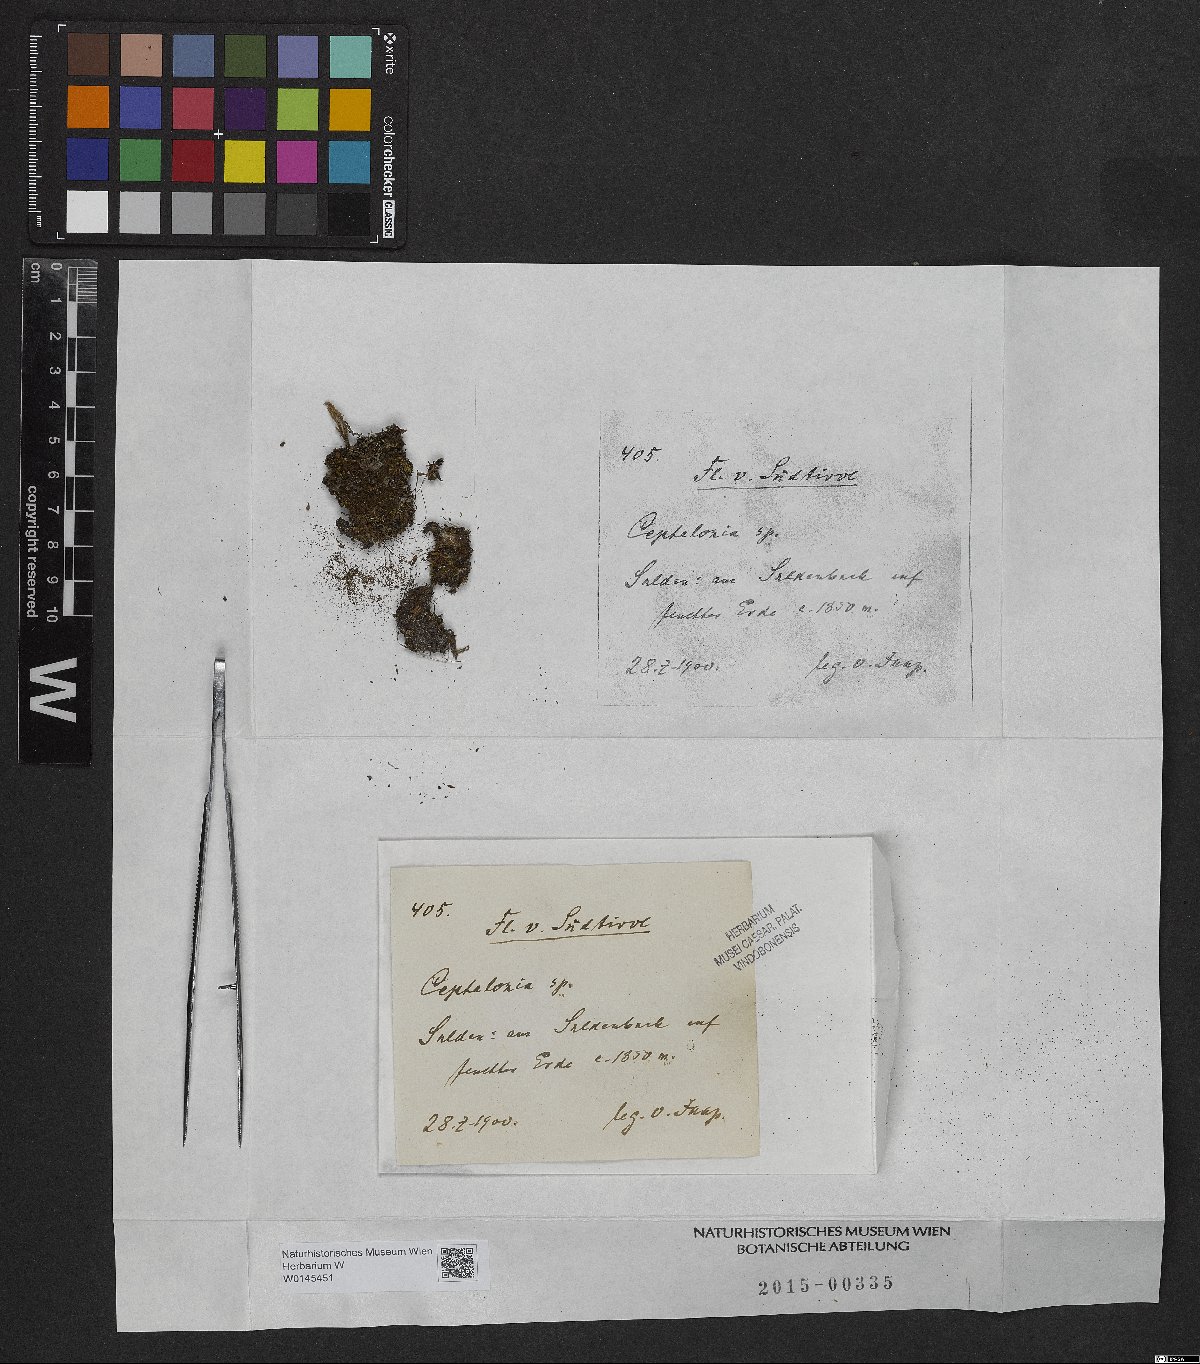 xrite
colorchecker CLASSIC
mm
cm
0 1 2 3 4 5 6 7 8 9 10
copyright reserved
W
405.
Fl. v. Südtirol
Cephalozia sp.
Sulden: am Suldenbach auf
feuchter Erde c. 1850 m.
28.7.1900. leg. O. Jaap.
405.
Fl. v. Südtirol
Cephalozia sp.
Sulden: am Suldenbach auf
feuchter Erde c. 1850 m.
28.7.1900. leg. O. Jaap.
HERBARIUM
MUSEI CAESAR. PALAT.
VINDOBONENSIS
Naturhistorisches Museum Wien
Herbarium W
W0145451
NATURHISTORISCHES MUSEUM WIEN
BOTANISCHE ABTEILUNG
2015-00335